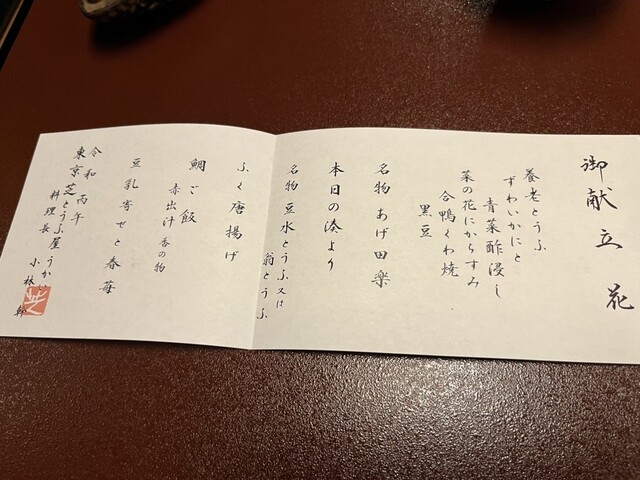 御献立 花
養老とうふ
ずわいかにと
青菜酢浸し
菜の花にからすみ
合鴨くわ焼
黒豆
名物 あげ田楽
本日の湊より
名物 豆水とうふ 又は
翁とうふ
ふく唐揚げ
鯛ご飯
赤出汁 香の物
豆乳寄せと春苺
令和 丙午
東京芝とうふ屋うかい
料理長 小林